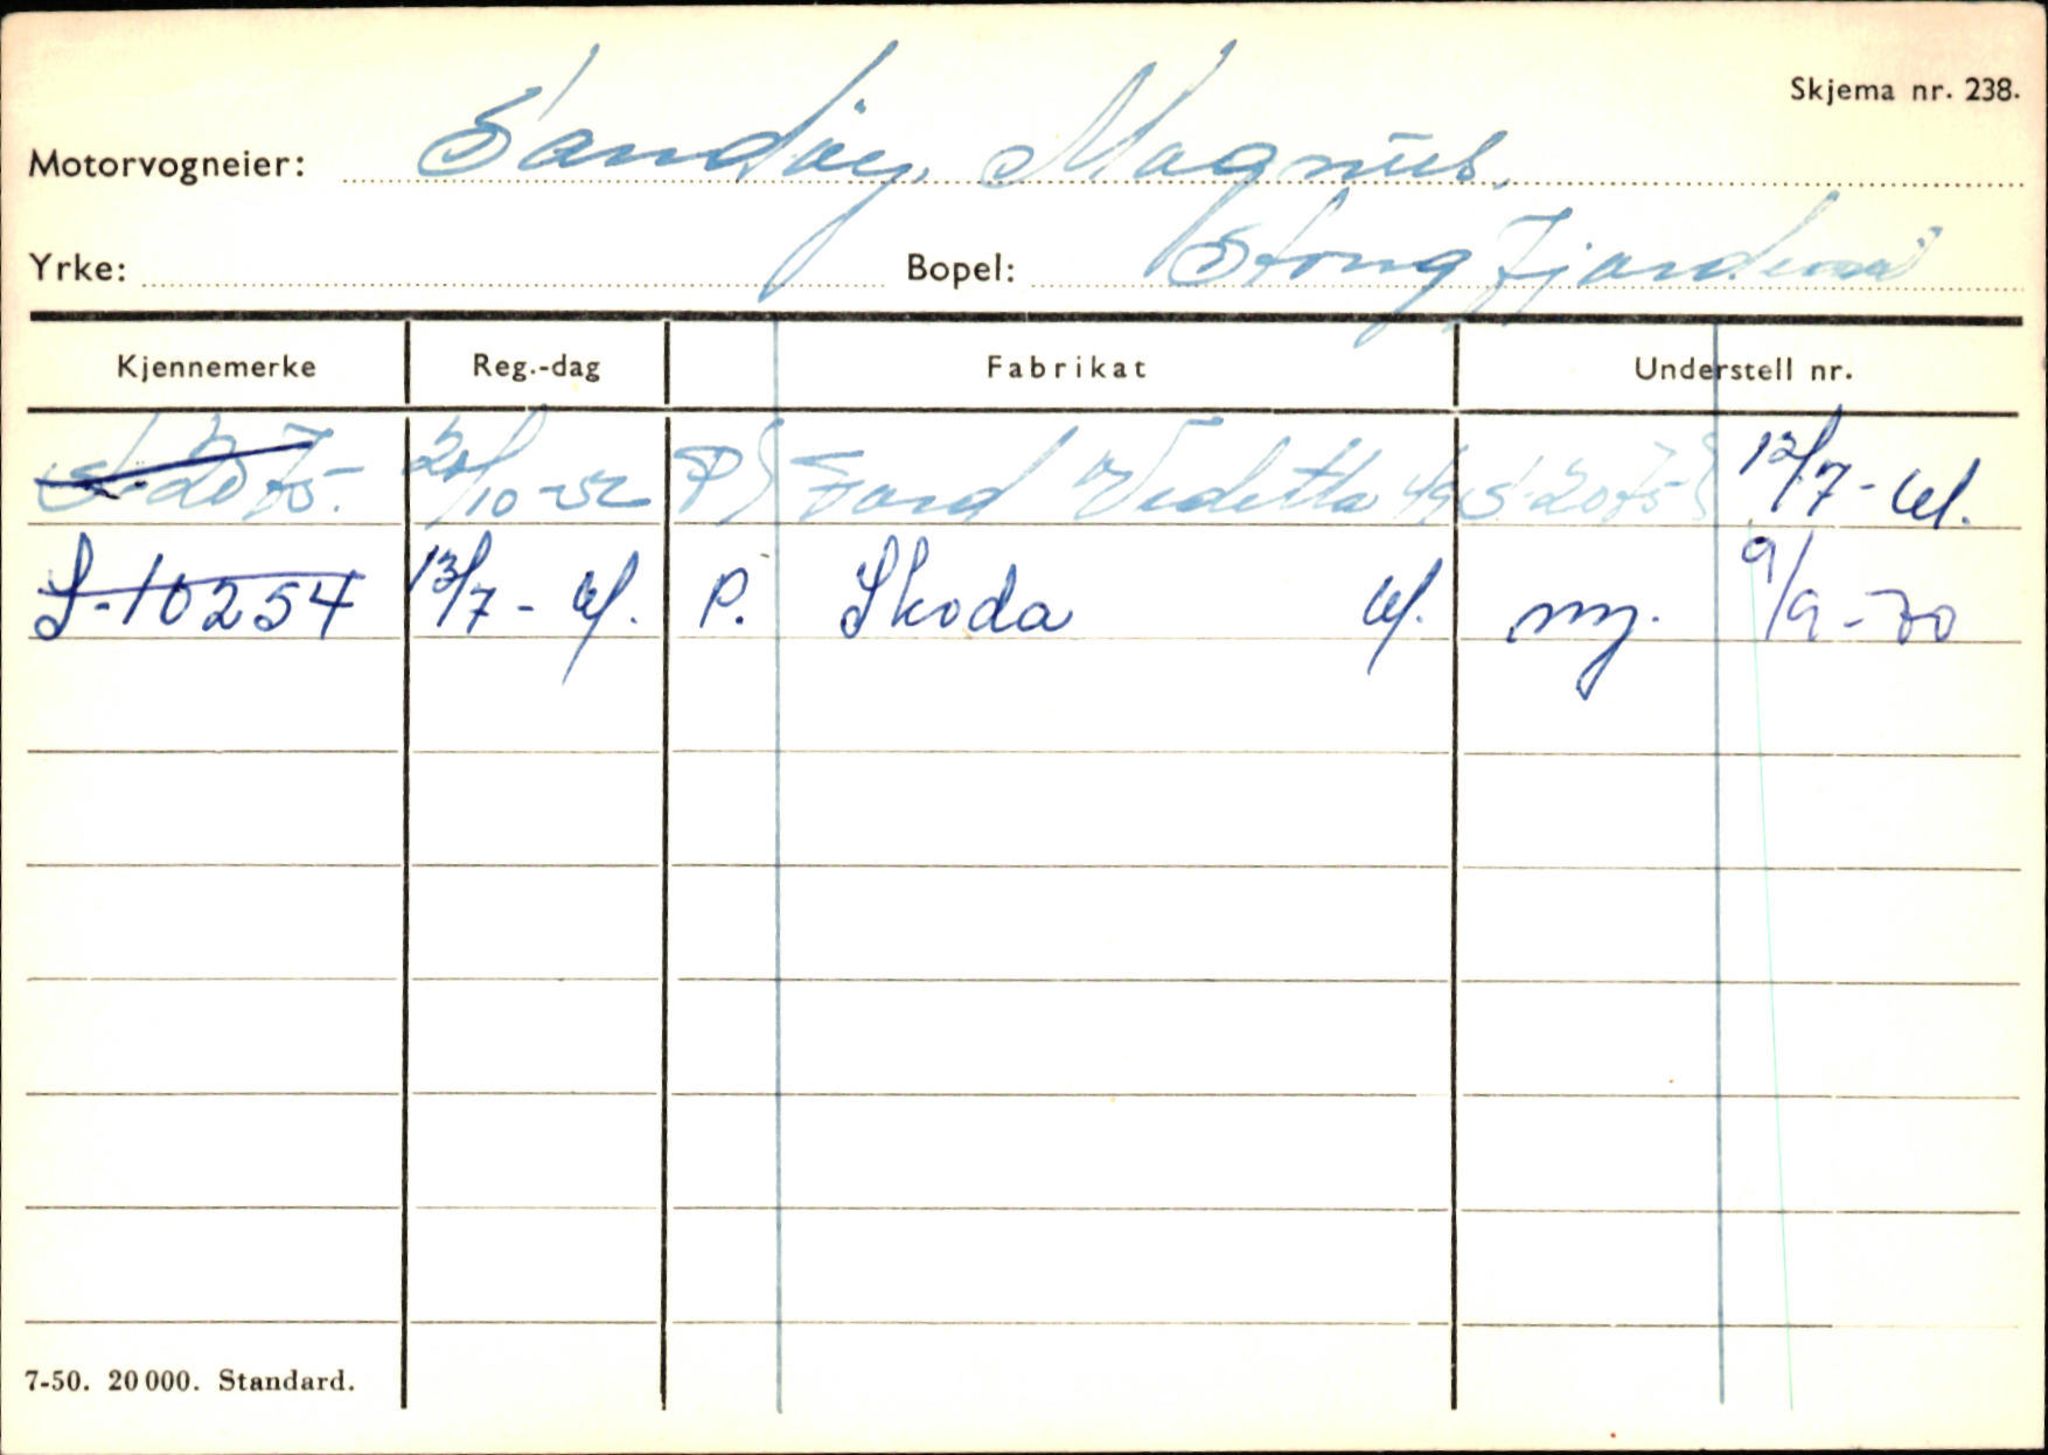 Skjema nr. 238.
Motorvogneier: Sandöy, Magnus.
Yrke: Bopel: Stongfjorden
Kjennemerke Reg.-dag Fabrikat Understell nr.
S-2075. 21/10-52 P) Ford Vedette 49 S-2075 12/7-61.
S-10254 13/7-61. P. Skoda 61. ny. 9/9-70
7-50. 20 000. Standard.